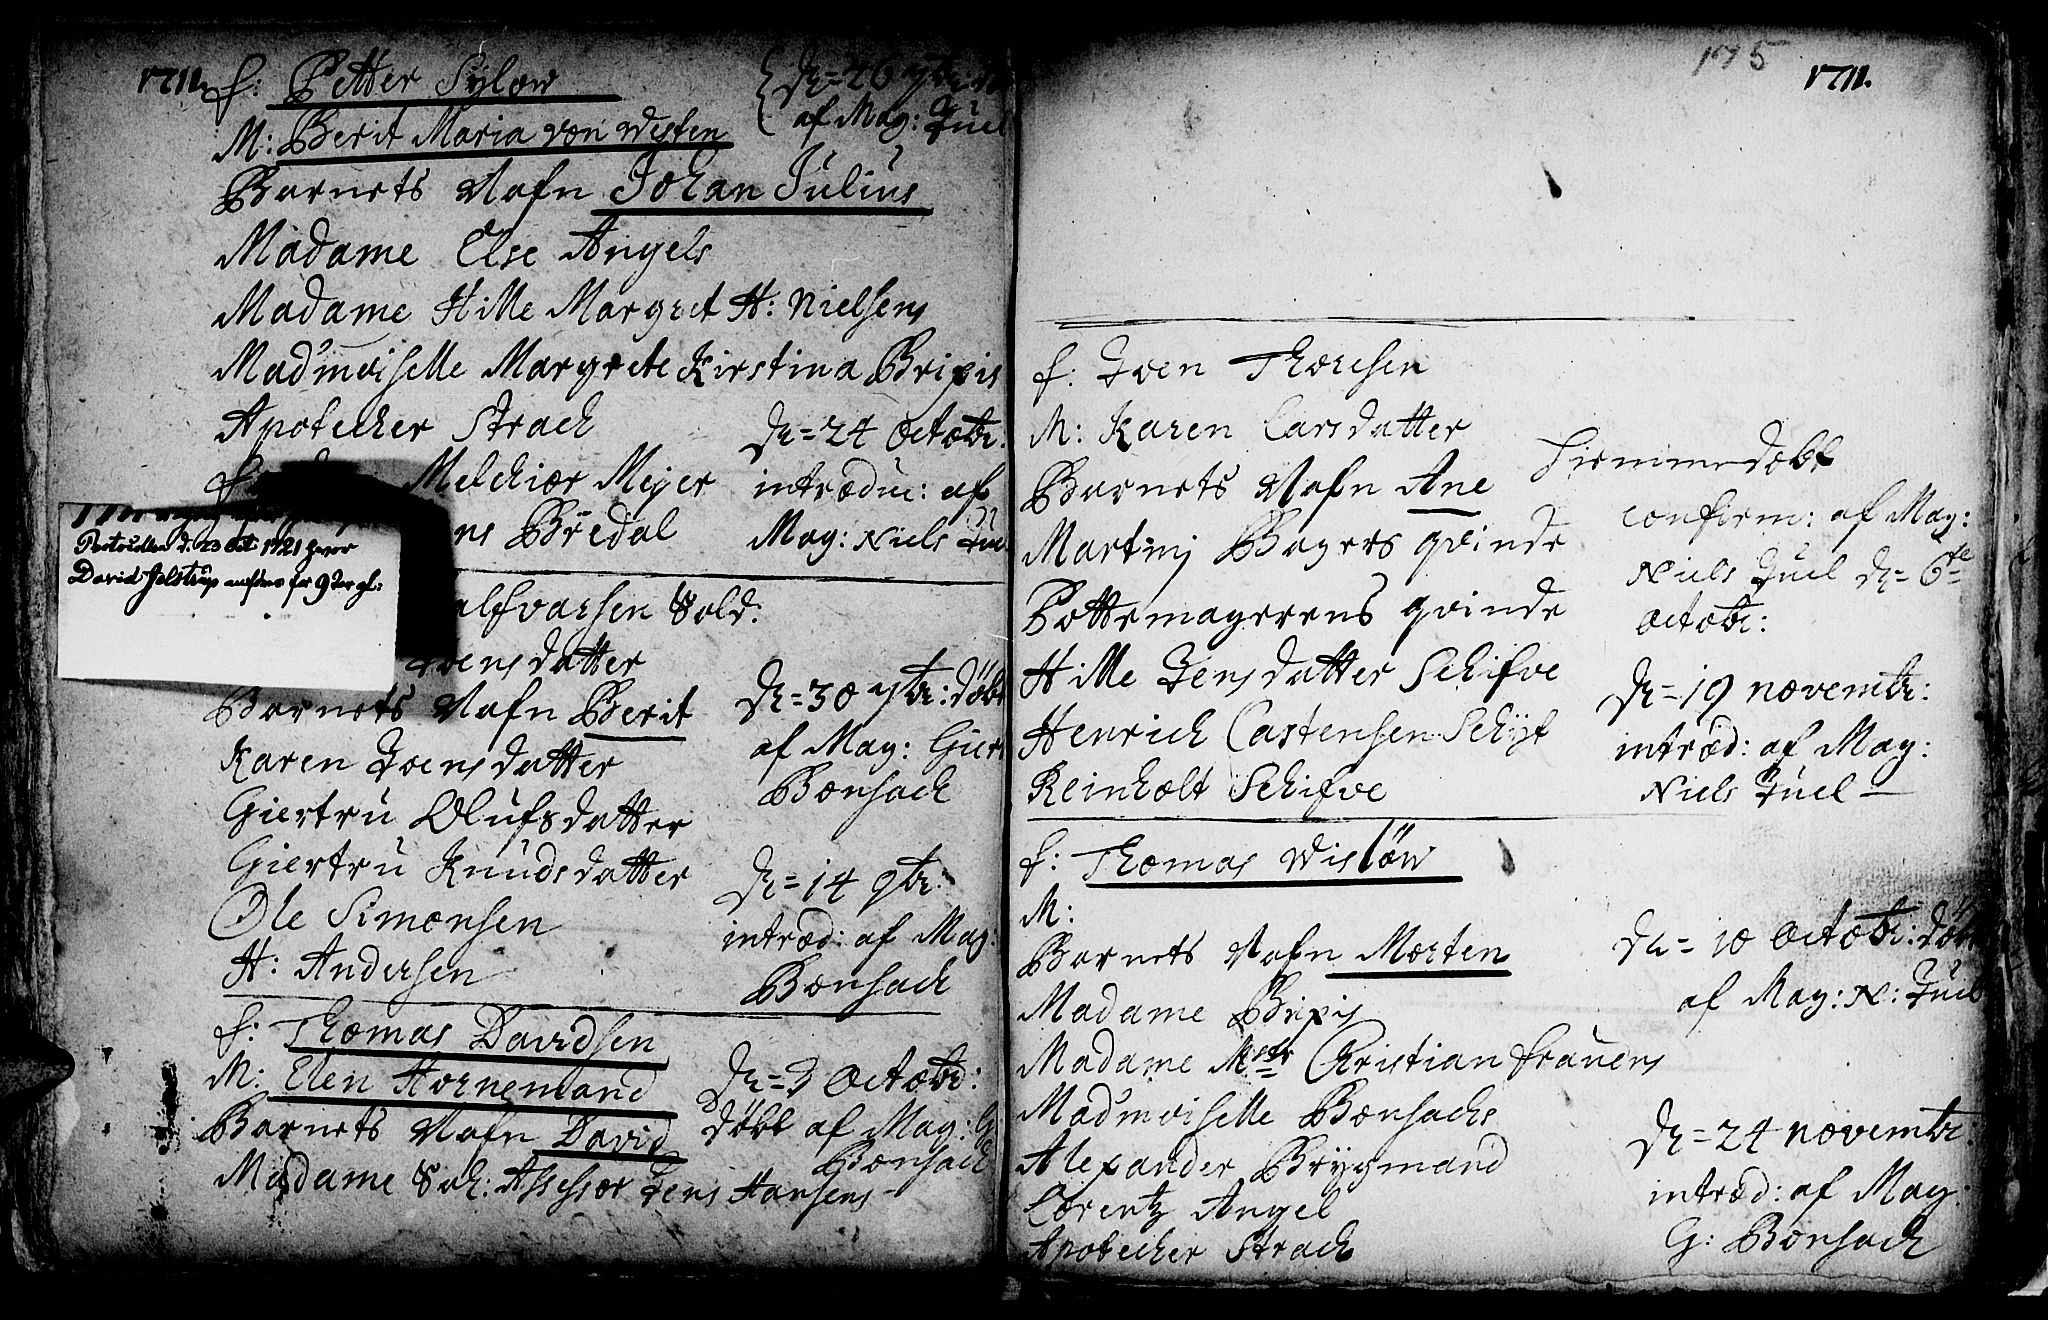 1711.
f: Petter Sylow
M: Berit Maria von Westen
Barnets Nafn Johan Julius
Madame Else Angels
Madame Hille Margret H: Nielsens
Mad'moiselle Margrete Kirstina Brixis
Apotecher Strach
Melchior Meyer
Bredal
D = 26 7br:
af Mag: Juel
D = 24 Octobr:
introduc: af
Mag: Niels Juel
Protocollen d: 23 Oct 1721
David Jelstrup
alfvarsen Sold:
Joensdatter
Barnets Nafn Berit
Karen Joensdatter
Giertru Olufsdatter
Giertru Knudsdatter
Ole Simonsen
H: Andersen
D = 30 7br: döbt
af Mag: Giert
Bonsach
D = 14 9br:
introd: af Mag:
Bonsach
f: Thomas Davidsen
M: Elen Hornemand
Barnets Nafn David
Madame Sal: Assessor Jens Hansens
D = 3 Octobr:
döbt af Mag: G
Bonsach
175
1711.
f: Joen Thoresen
M: Karen Larsdatter
Barnets Nafn Ane
Martinj Bagers qvinde
Pottemagerens qvinde
Hille Jensdatter Schifve
Henrich Castensen Schÿt
Reinholt Schifve
Hiemmedobt
confirm: af Mag:
Niels Juel D = 6te
Octobr:
D = 19 novembr:
introd: af Mag:
Niels Juel
f: Thomas Wislöw
M:
Barnets Nafn Morten
Madame Brixis
Madame Mstr Christian Frauens
Mad'moiselle Bonsachs
Alexander Brygmand
Lorentz Angel
Apotecher Strach
D = 10 Octobr: döbt
af Mag: N: Juel
D = 24 novembr:
introd: af Mag:
G: Bonsach